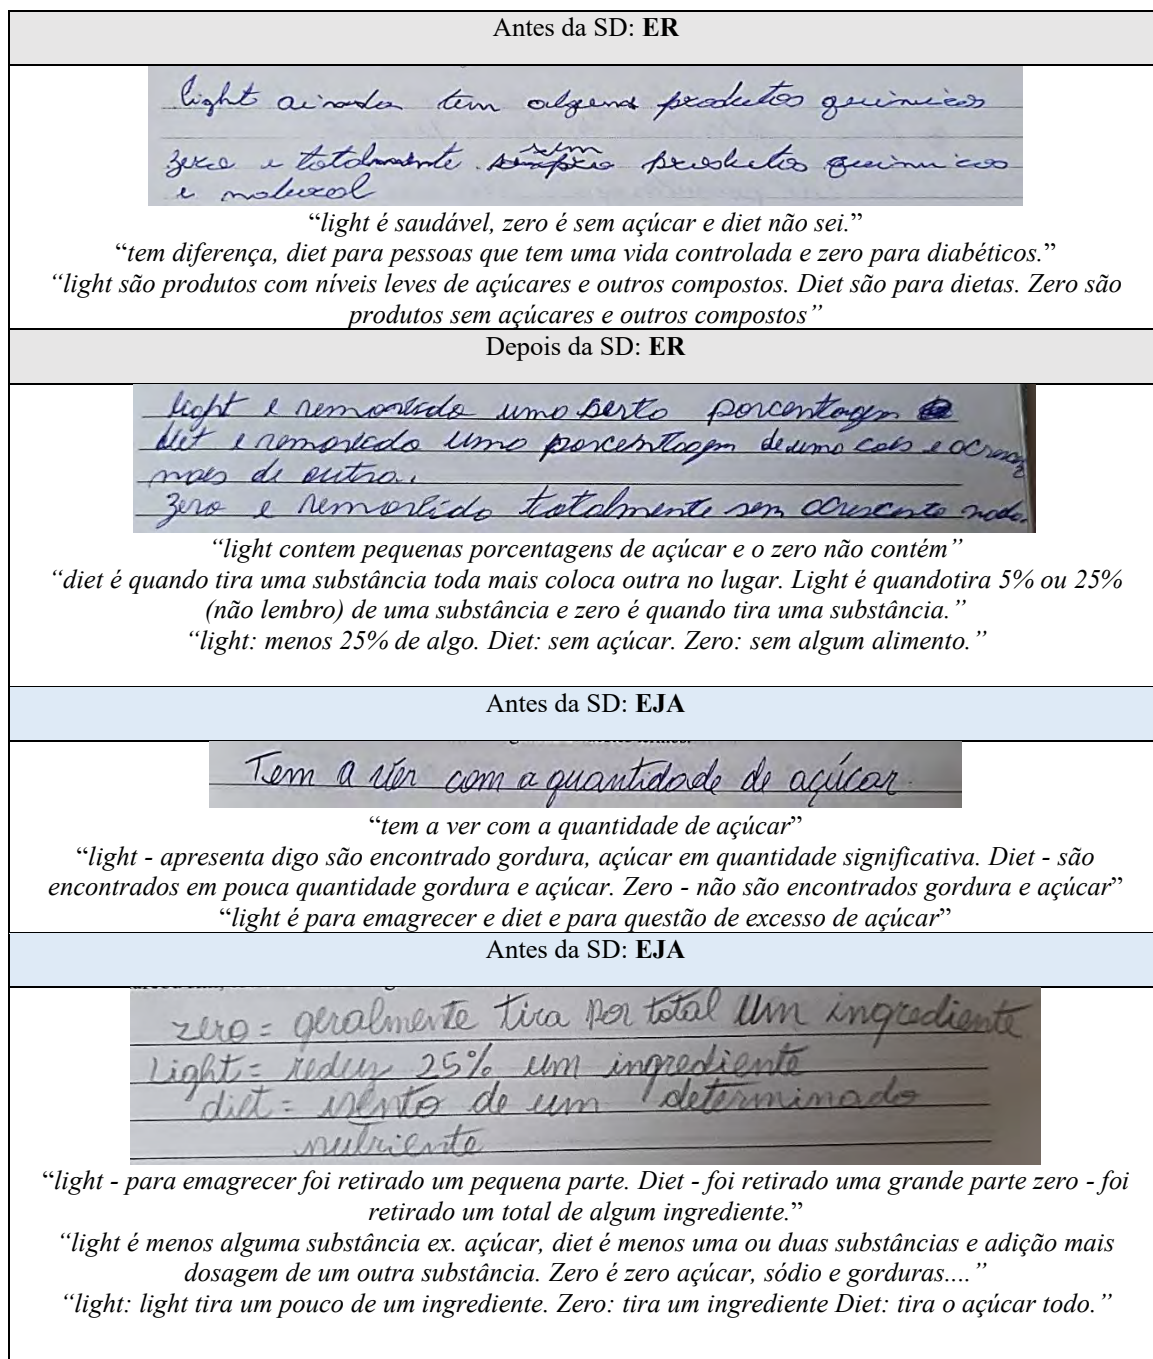 Antes da SD: ER
light ainda tem alguns produtos quimicos
zero e totalmente sem produtos quimnicos
e natural
“light é saudável, zero é sem açúcar e diet não sei.”
“tem diferença, diet para pessoas que tem uma vida controlada e zero para diabéticos.”
“light são produtos com níveis leves de açúcares e outros compostos. Diet são para dietas. Zero são
produtos sem açúcares e outros compostos”
Depois da SD: ER
light e removido uma serto porcentagem
diet e removido uma porcentagem de uma cois e
mais de outra.
Zero e removido totalmente sem acrescenta nada.
“light contem pequenas porcentagens de açúcar e o zero não contém”
“diet é quando tira uma substância toda mais coloca outra no lugar. Light é quandotira 5% ou 25%
(não lembro) de uma substância e zero é quando tira uma substância.”
“light: menos 25% de algo. Diet: sem açúcar. Zero: sem algum alimento.”
Antes da SD: EJA
Tem a ver com a quantidade de açúcar.
“tem a ver com a quantidade de açúcar”
“light - apresenta digo são encontrado gordura, açúcar em quantidade significativa. Diet - são
encontrados em pouca quantidade gordura e açúcar. Zero - não são encontrados gordura e açúcar”
“light é para emagrecer e diet e para questão de excesso de açúcar”
Antes da SD: EJA
zero = geralmente tira por total um ingrediente
Light = reduz 25% um ingrediente
diet = isento de um determinado
nutriente
“light - para emagrecer foi retirado um pequena parte. Diet - foi retirado uma grande parte zero - foi
retirado um total de algum ingrediente.”
“light é menos alguma substância ex. açúcar, diet é menos uma ou duas substâncias e adição mais
dosagem de um outra substância. Zero é zero açúcar, sódio e gorduras....”
“light: light tira um pouco de um ingrediente. Zero: tira um ingrediente Diet: tira o açúcar todo.”